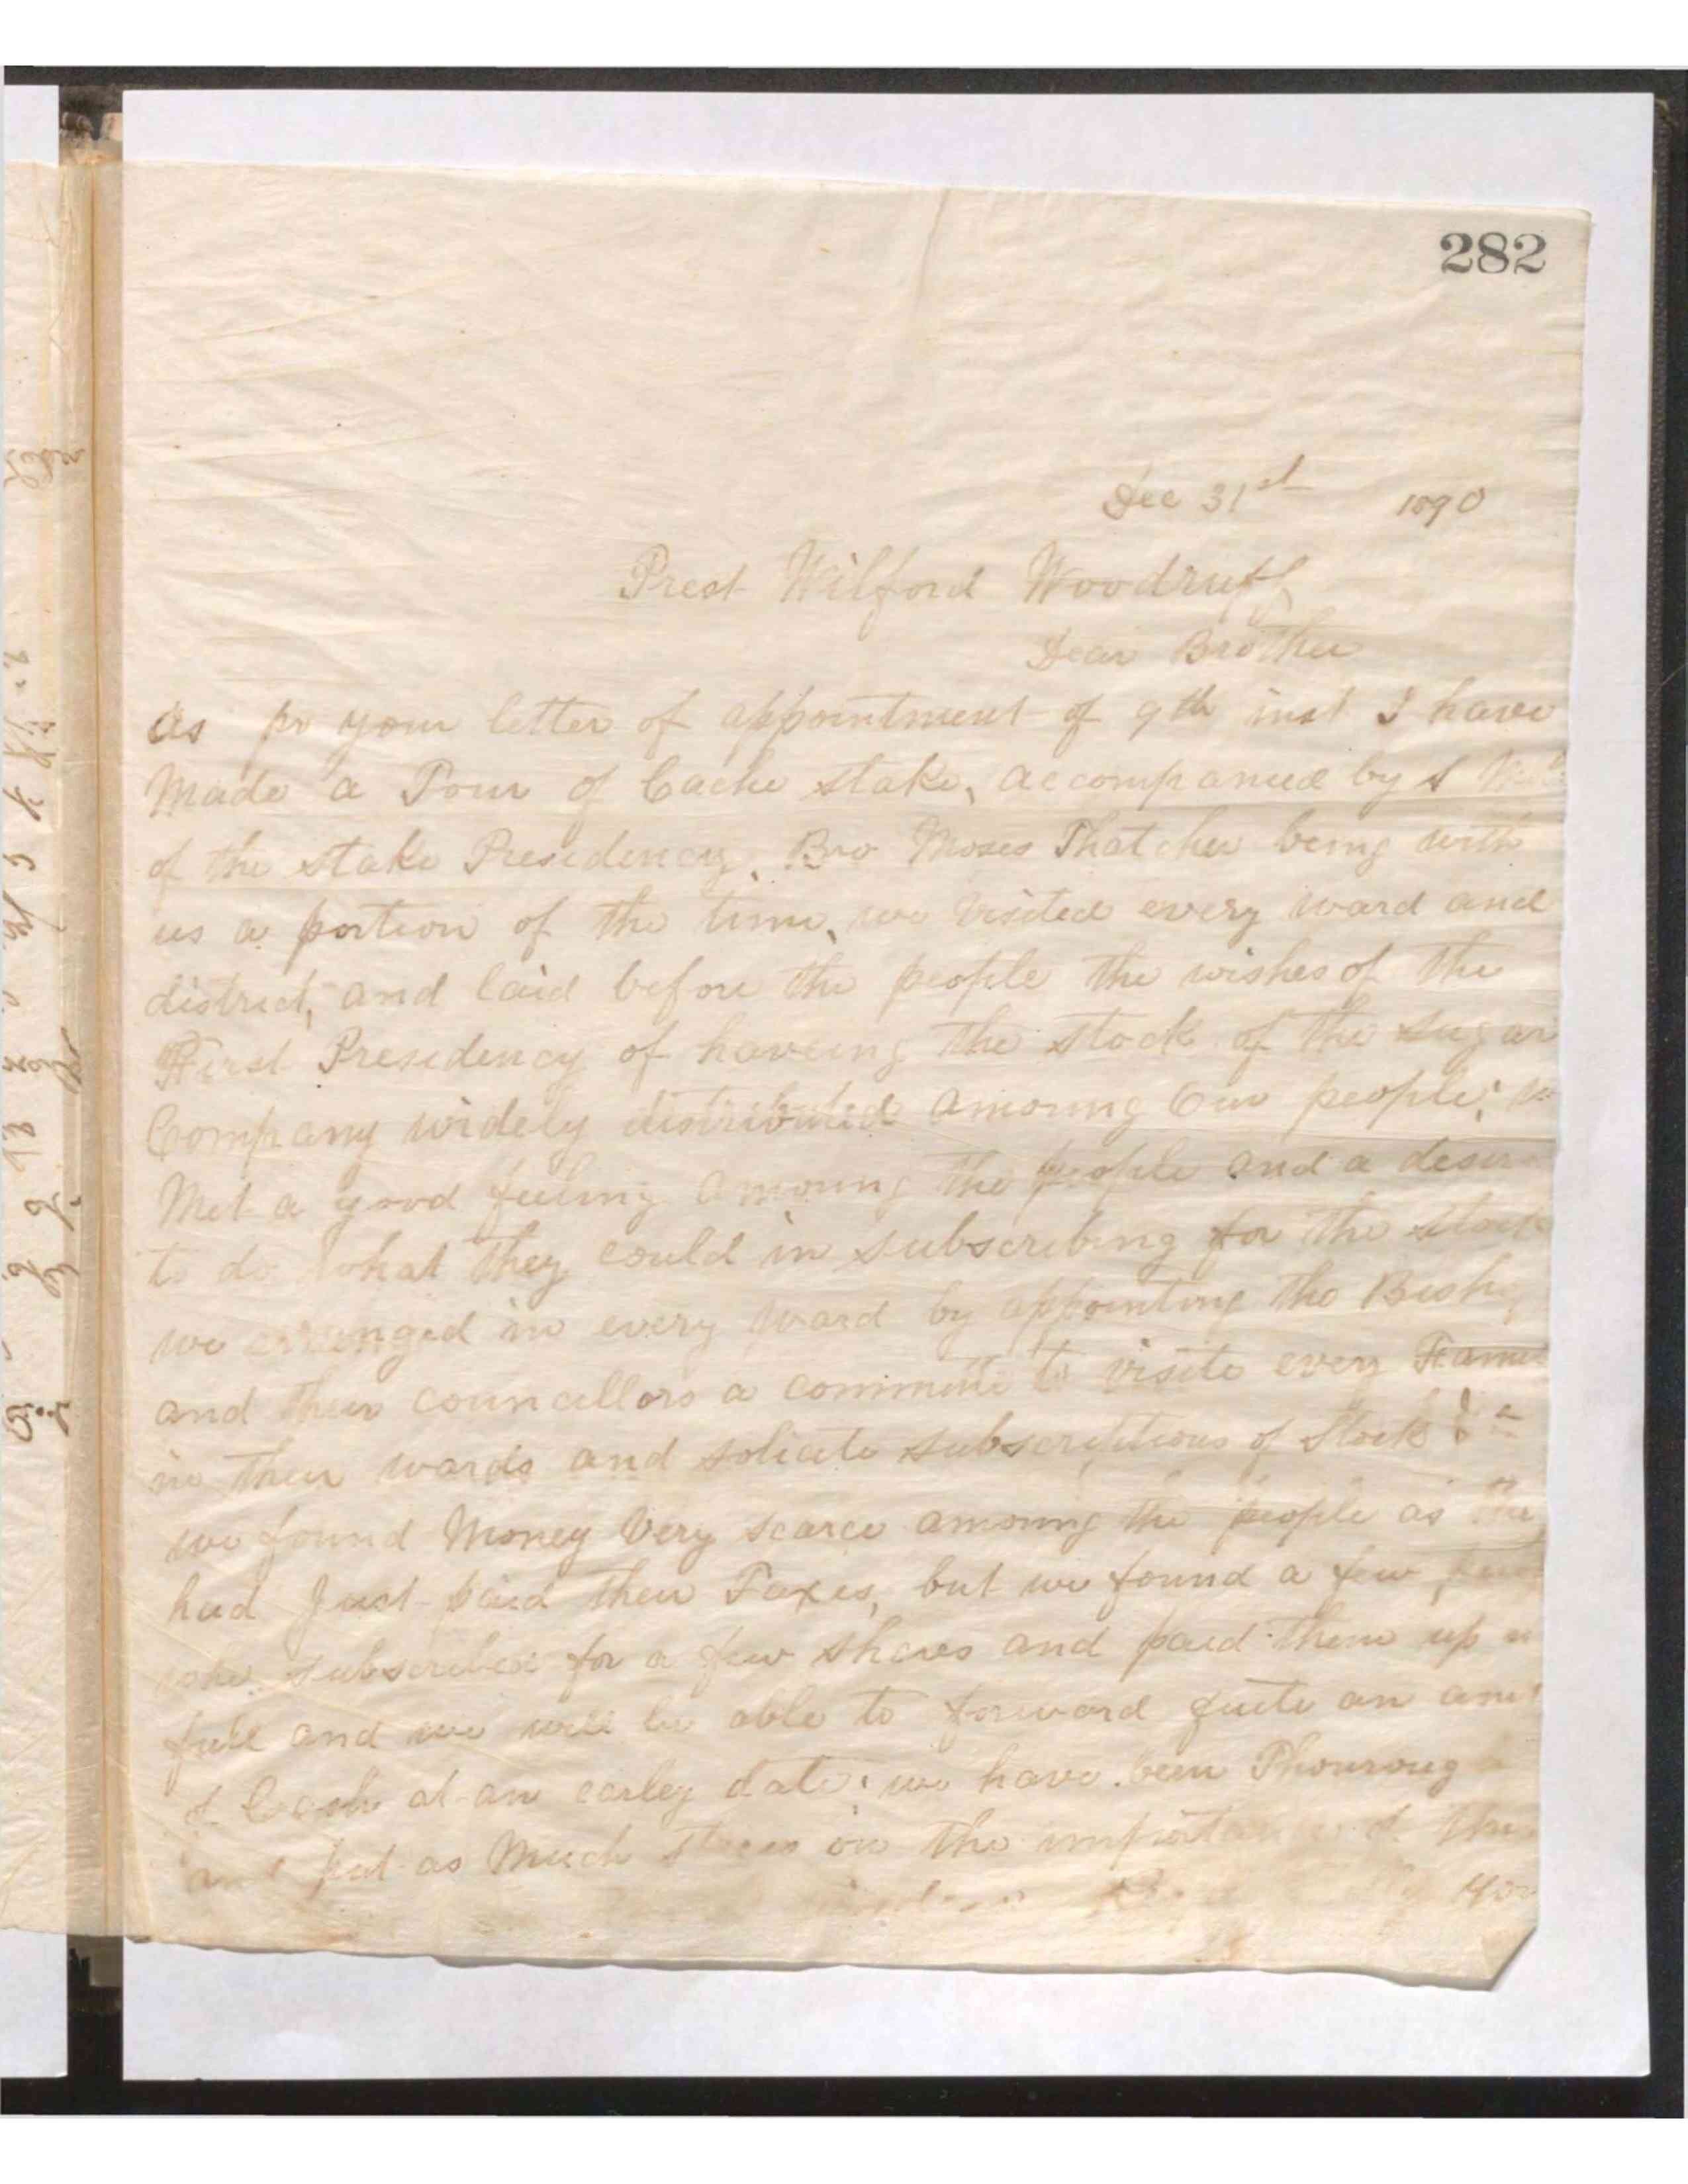 282
Dec 31st 1890
Prest Wilford Woodruff
Dear Brother
As pr your letter of appointment of 9th inst I have
Made a Tour of Cache stake, accompanied by
of the stake Presidency. Bro Moses Thatcher being with
us a portion of the time, we visited every ward and
district, and laid before the people the wishes of the
First Presidency of haveing the stock of the sugar
Company widely distributed amoung Our people;
Met a good feeling amoung the people and a desire
to do what they could in subscribing for the stock
we arranged in every ward by appointing the
and their councillors a committe to visite every
in their wards and solicite subscriptions of Stock
we found Money Very scarce amoung the people as
had Just paid their Taxes, but we found a few
who subscribed for a few shares and paid them up
full and we will be able to forward quite an amt
of Cash at an earley date; we have been
and put as Much stress on the importance of the